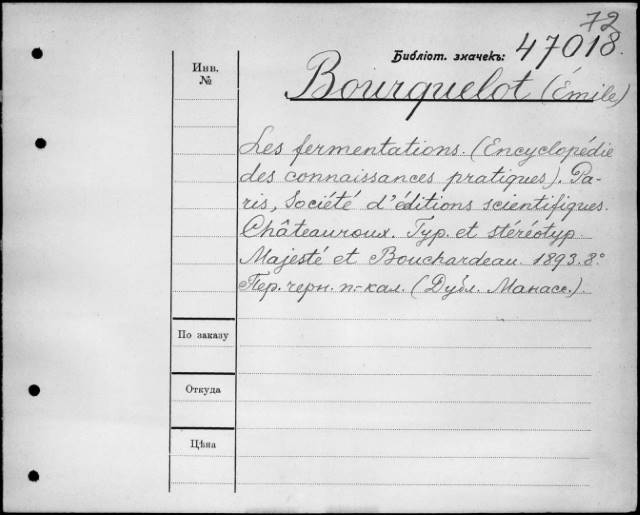 72
Библіот. значекъ: 47018.
Инв.
№
Bourquelot (Émile)
Les fermentations. (Encyclopédie
des connaissances pratiques). Pa-
ris, Société d'éditions scientifiques.
Châteauroux. Typ. et stéréotyp.
Majesté et Bouchardeau. 1893. 8°.
Пер. черн. п.-кал. (Дубл. Манасс.).
По заказу
Откуда
Цѣна